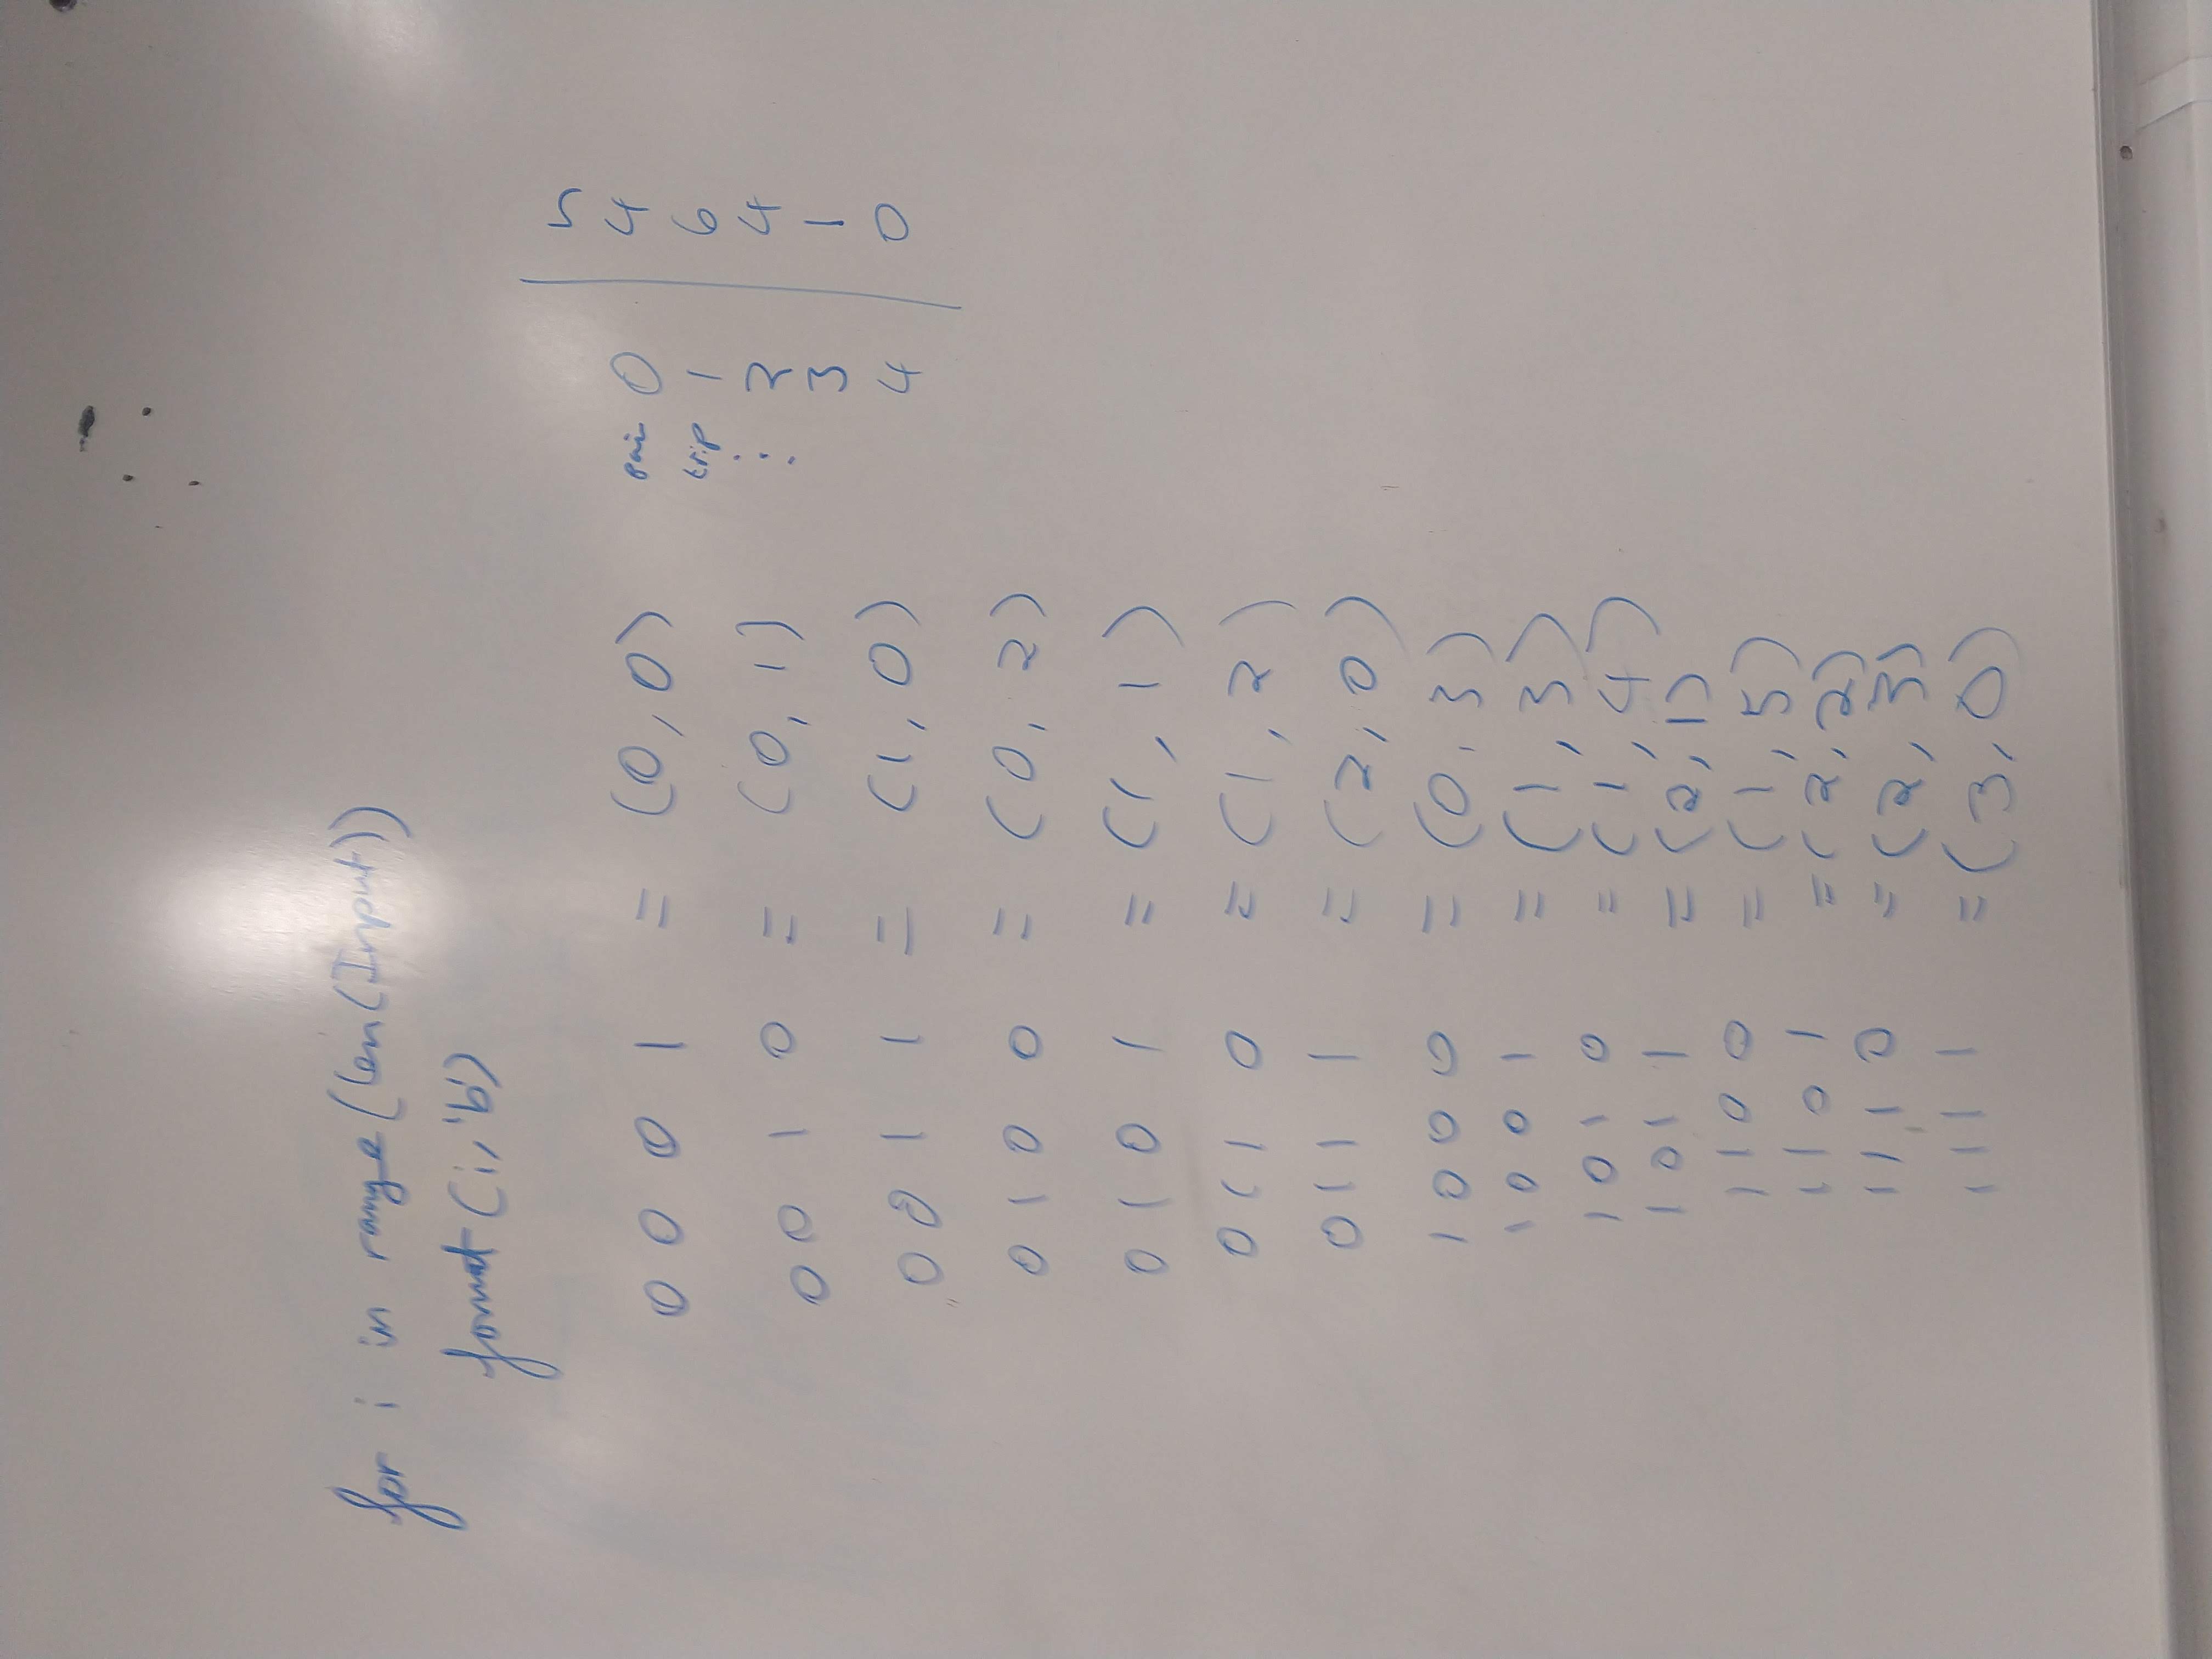 for i in range(len(Input))
format(i,'b')
0 0 0 1 = (0,0)
0 0 1 0 = (0,1)
0 0 1 1 = (1,0)
0 1 0 0 = (0,2)
0 1 0 1 = (1,1)
0 1 1 0 = (1,2)
0 1 1 1 = (2,0)
1 0 0 0 = (0,3)
1 0 0 1 = (1,3)
1 0 1 0 = (1,4)
1 0 1 1 = (2,1)
1 1 0 0 = (1,5)
1 1 0 1 = (2,2)
1 1 1 0 = (2,3)
1 1 1 1 = (3,0)
n
0 4
trip 1 6
⋮ 2 4
3 1
4 0